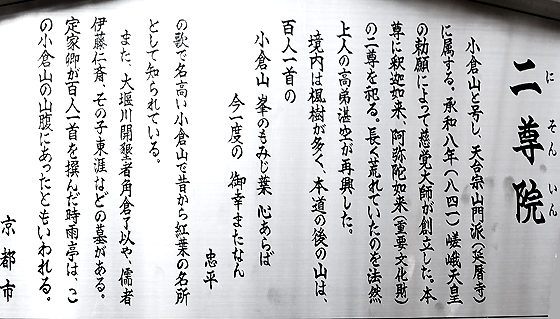 二尊院
にそんいん
小倉山と号し、天台宗山門派(延暦寺)
に属する。承和八年(八四一)嵯峨天皇
の勅願によって慈覚大師が創立した。本
尊に釈迦如来、阿弥陀如来(重要文化財)
の二尊を祀る。長く荒れていたのを法然
上人の高弟湛空が再興した。
境内は楓樹が多く、本道の後の山は、
百人一首の
小倉山 峯のもみじ葉 心あらば
今一度の 御幸またなん
忠平
の歌で名高い小倉山で昔から紅葉の名所
として知られている。
また、大堰川開墾者角倉了以や、儒者
伊藤仁斎、その子東涯などの墓がある。
定家卿が百人一首を撰んだ時雨亭は、こ
の小倉山の山腹にあったともいわれる。
京都市